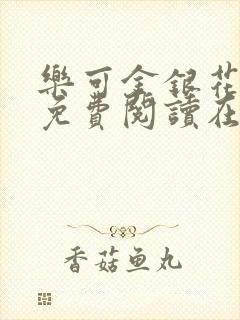 樂可金銀花
免費閱讀在
香菇鱼丸